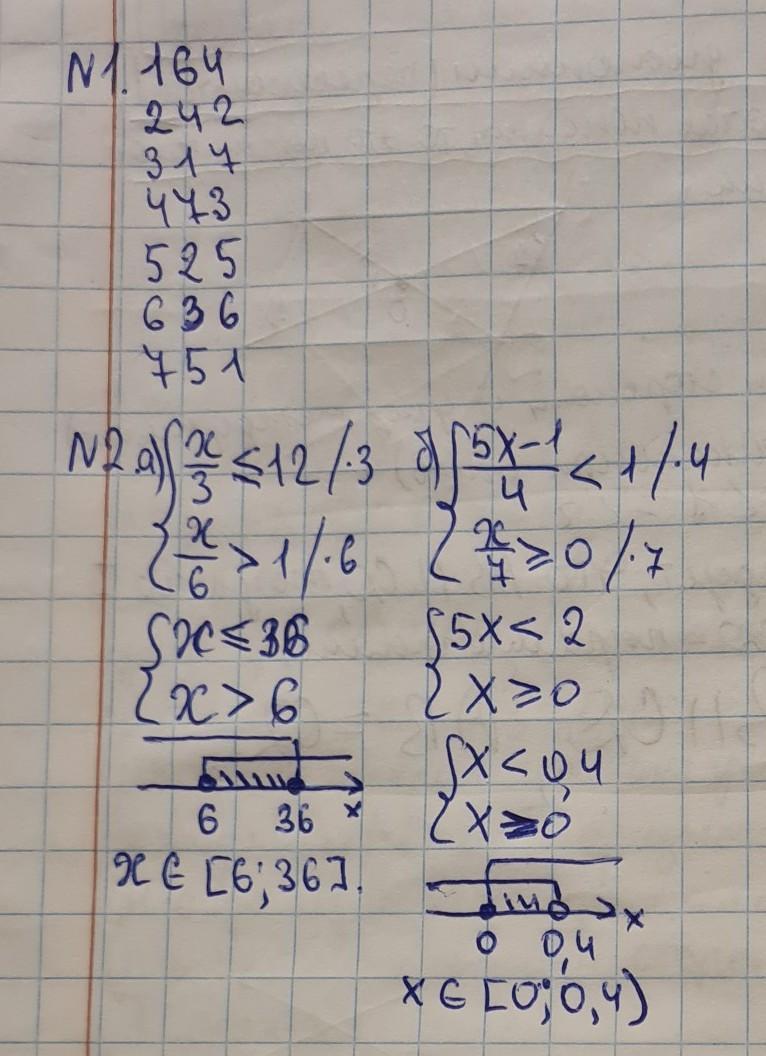 N1. 164
242
317
473
525
636
751
N2. а) { x/3 ≤ 12 /·3
{ x/6 > 1 /·6
{ x ≤ 36
{ x > 6
6 36 x
x ∈ [6; 36].
б) { (5x-1)/4 < 1 /·4
{ x/7 ≥ 0 /·7
{ 5x < 2
{ x ≥ 0
{ x < 0,4
{ x ≥ 0
0 0,4 x
x ∈ [0; 0,4)